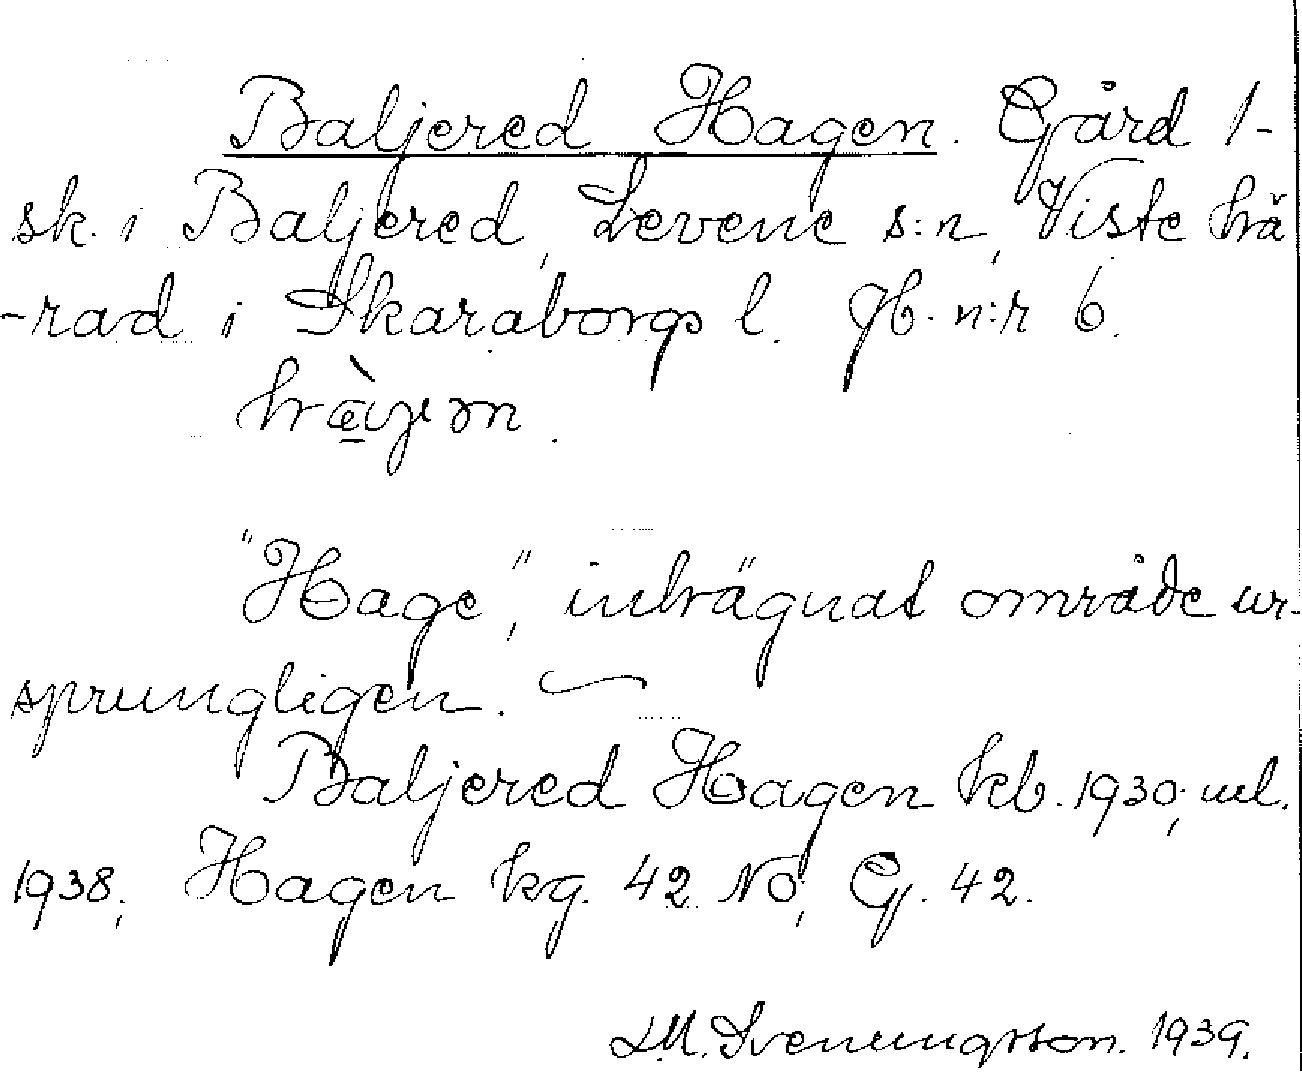 Baljered Hagen. Gård 1-
sk. i Baljered, Levene s:n, Viste hä
-rad i Skaraborgs l. Jb. n:r 6.
"Hage", inhägnat område ur-
sprungligen.
Baljered Hagen kb. 1930; ml.
1938; Hagen kg. 42 NO, G. 42.
L.M. Svenungsson. 1939.